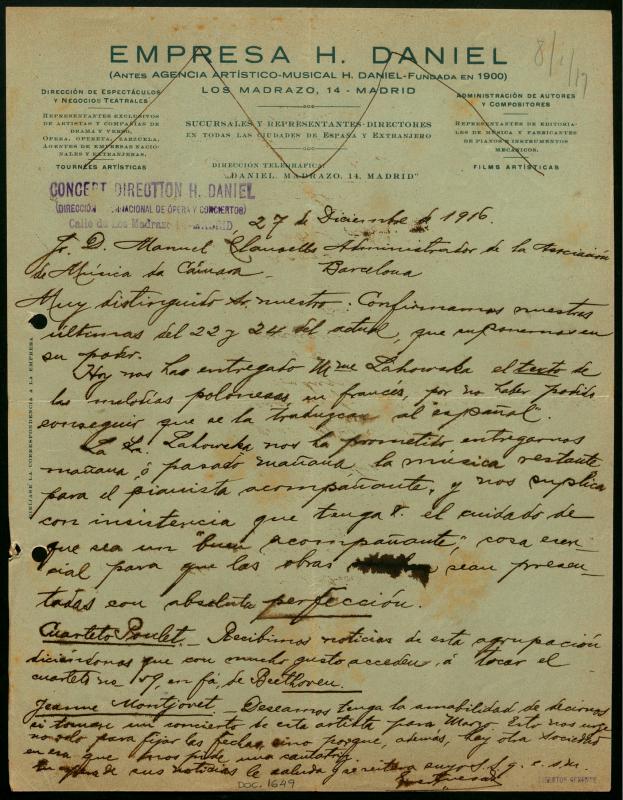 EMPRESA H. DANIEL
(ANTES AGENCIA ARTÍSTICO-MUSICAL H. DANIEL-FUNDADA EN 1900)
LOS MADRAZO, 14 - MADRID
8/1/17
DIRECCIÓN DE ESPECTÁCULOS
Y NEGOCIOS TEATRALES
REPRESENTANTES EXCLUSIVOS
DE ARTISTAS Y COMPAÑÍAS DE
DRAMA Y VERSO,
OPERA, OPERETA, ZARZUELA,
AGENTES DE EMPRESAS NACIO-
NALES Y EXTRANJERAS.
TOURNÉES ARTÍSTICAS
SUCURSALES Y REPRESENTANTES-DIRECTORES
EN TODAS LAS CIUDADES DE ESPAÑA Y EXTRANJERO
DIRECCIÓN TELEGRÁFICA:
"DANIEL, MADRAZO, 14, MADRID"
ADMINISTRACIÓN DE AUTORES
Y COMPOSITORES
REPRESENTANTES DE EDITORIA-
LES DE MÚSICA Y FABRICANTES
DE PIANOS E INSTRUMENTOS
MECÁNICOS.
FILMS ARTÍSTICAS
CONCERT DIRECTION H. DANIEL
(DIRECCIÓN NACIONAL DE ÓPERA Y CONCIERTOS)
Calle de Los Madrazo MADRID
27 de Diciembre de 1916.
Sr. D. Manuel Clausells Administrador de la Asociación
de Música da Cámara Barcelona
Muy distinguido Sr. nuestro: Confirmamos nuestras
últimas del 22 y 24 del actual, que suponemos en
su poder.
Hoy nos ha entregado Mme Lahowska el texto de
las melodías polonesas, en francés, por no haber podido
conseguir que se la traduzcan al "español".
La Sra. Lahowska nos ha prometido entregarnos
mañana, ó pasado mañana, la música restante
para el pianista acompañante, y nos suplica
con insistencia que tenga V. el cuidado de
que sea un "buen acompañante", cosa esen-
cial para que las obras sean presen-
tadas con absoluta perfección.
Cuarteto Poulet. - Recibimos noticias de esta agrupación
diciéndonos que con mucho gusto acceden, á tocar el
cuarteto no en fá, de Beethoven.
Jeanne Montjovet - Deseamos tenga la amabilidad de decirnos
si toman un concierto de esta artista para Marzo. Esto nos urge
no solo para fijar las fechas, sino porque, además, hay otra Sociedad
en esa que nos pide una cantatriz.
En espera de sus noticias le saluda y se reitera suyo S. S. q. e. s. m.
DIRECTOR GERENTE
DIRÍJASE LA CORRESPONDENCIA A LA EMPRESA
DOC. 1649